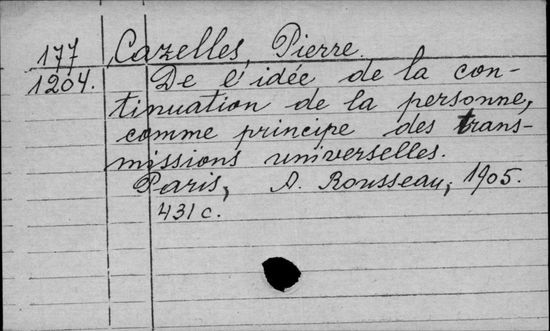 177 Cazelles, Pierre.
1204. De l'idée de la con-
tinuation de la personne,
comme principe des trans-
missions universelles.
Paris, A. Rousseau, 1905.
431 c.